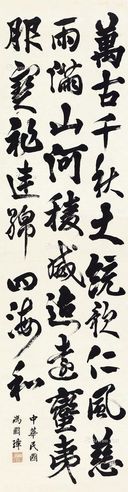 萬古千秋大統歌仁風慈
雨滿山河稜威迩遠蠻夷
服寶祚連綿四海和
中華民國
馮國璋